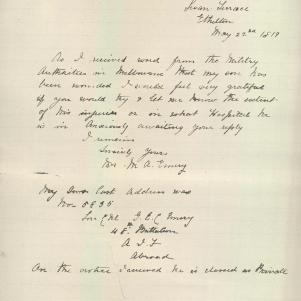 Swan Terrace
Ethelton
May 22nd 1917
As I received word from the Military
Authorities in Melbourne that my son has
been wounded I would feel very grateful
if you would try & let me know the extent
of his injuries or in what Hospital he
is in Anxiously awaiting your reply
I remain
Sincerely Yours
Mrs M A Emery
My Sons Last Address was
No 5835
Cpl G. E. C Emery
48th Battalion
A I F
Abroad
On the I received he is classed as Private